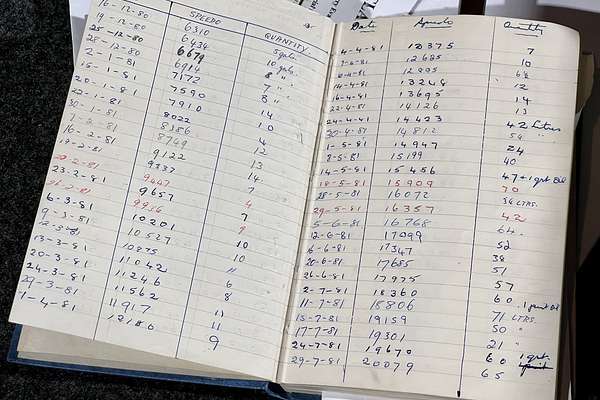 SPEEDO QUANTITY.
16-12-80 6310 5 gals
19-12-80 6434 10 gals
25-12-80 6679 8 "
28-12-80 6911 7 "
2-1-81 7172 8 "
15-1-81 7590 14
20-1-81 7910 10
22-1-81 8022 4
30-1-81 8386 12
7-2-81 8749 13
16-2-81 9122 14
19-2-81 9337 7
22-2-81 9447 4
23-2-81 9657 7
26-2-81 9916 9
6-3-81 10201 10
9-3-81 10527 10
12-3-81 10275 11
13-3-81 11042 6
20-3-81 11246 8
24-3-81 11562 11
29-3-81 11917 11
1-4-81 12186 9
Date Speedo Quantity
4-4-81 12375 7
7-4-81 12685 10
8-4-81 12895 6½
14-4-81 13268 12
16-4-81 13695 14
22-4-81 14126 13
24-4-81 14423 42 Litres
30-4-81 14812 54 "
1-5-81 14947 24
8-5-81 15199 40
14-5-81 15456 47 + 1 qrt Oil
18-5-81 15909 70
28-5-81 16072 36 LTRS.
29-5-81 16357 42
5-6-81 16768 64
12-6-81 17099 52
16-6-81 17347 38
20-6-81 17685 51
26-6-81 17975 57
2-7-81 18360 60 1 pint oil
11-7-81 18806 71 LTRS.
15-7-81 19159 50 "
17-7-81 19301 21
24-7-81 19670 60 1 qrt.
29-7-81 20079 65